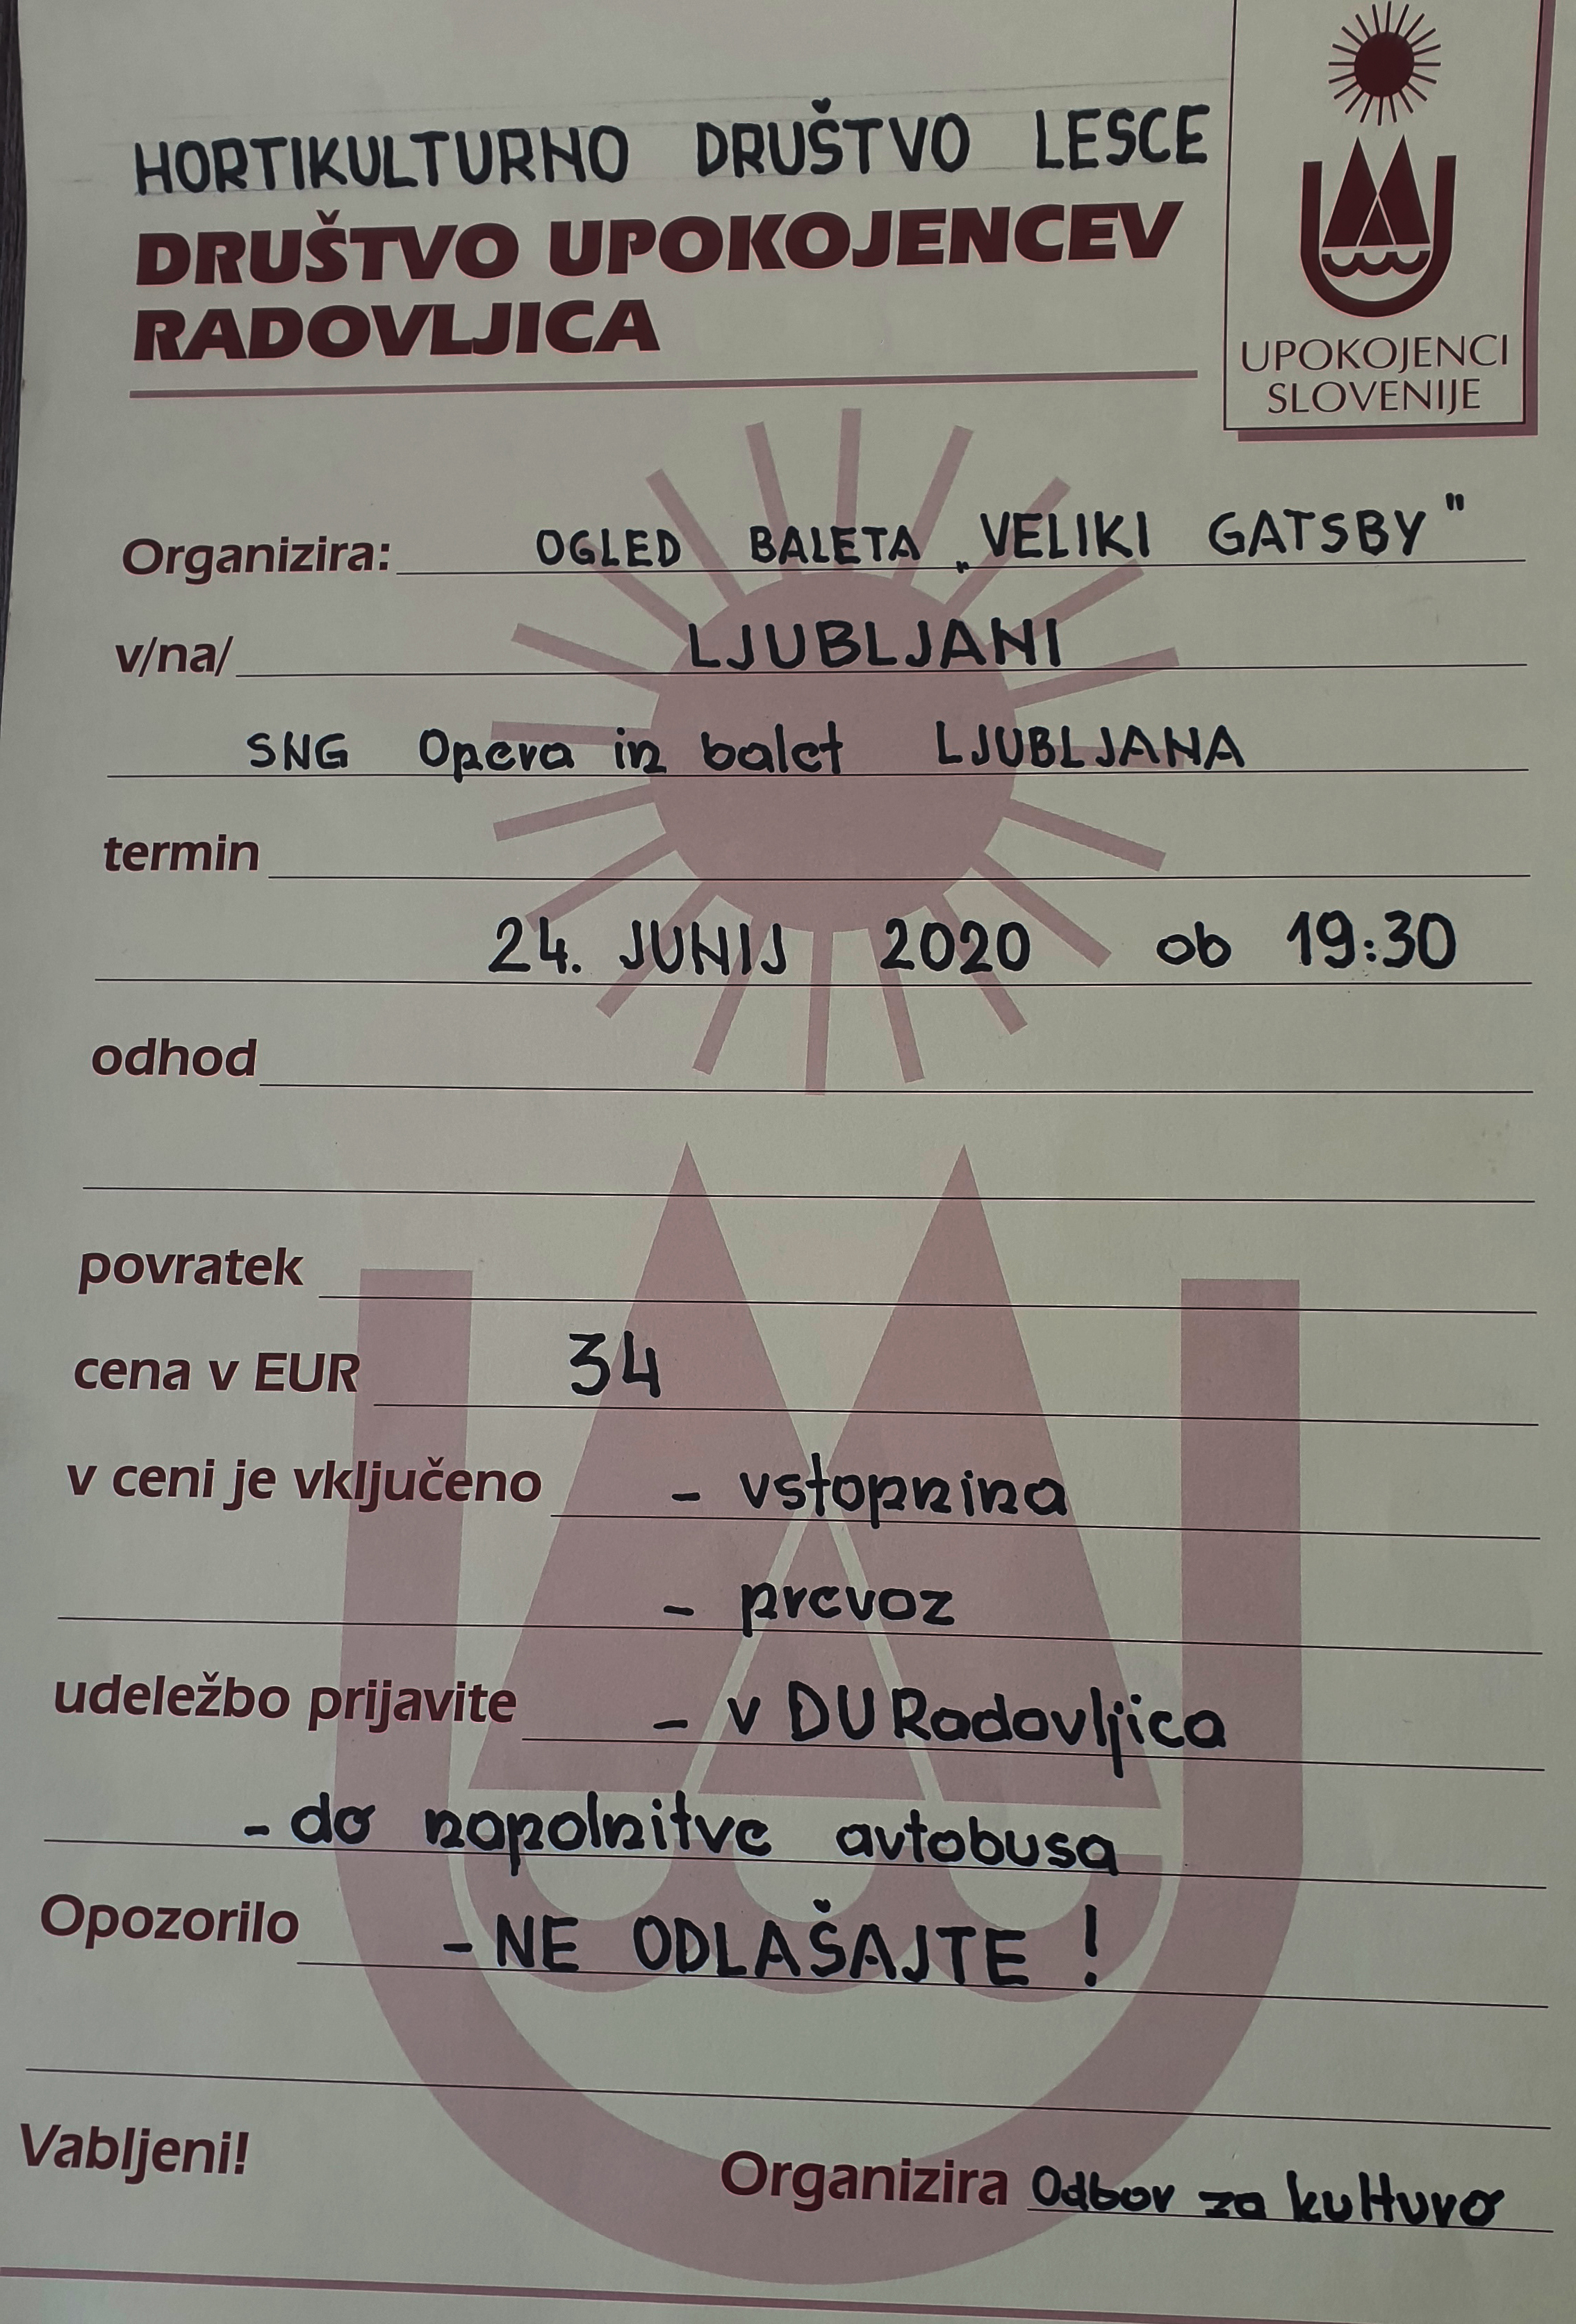 HORTIKULTURNO DRUŠTVO LESCE
DRUŠTVO UPOKOJENCEV
RADOVLJICA
UPOKOJENCI
SLOVENIJE
Organizira: OGLED BALETA „VELIKI GATSBY"
v/na/ LJUBLJANI
SNG Opera in balet LJUBLJANA
termin
24. JUNIJ 2020 ob 19:30
odhod
povratek
cena v EUR 34
v ceni je vključeno - vstopnina
- prevoz
udeležbo prijavite - v DU Radovljica
- do napolnitve avtobusa
Opozorilo - NE ODLAŠAJTE !
Vabljeni!
Organizira Odbor za kulturo